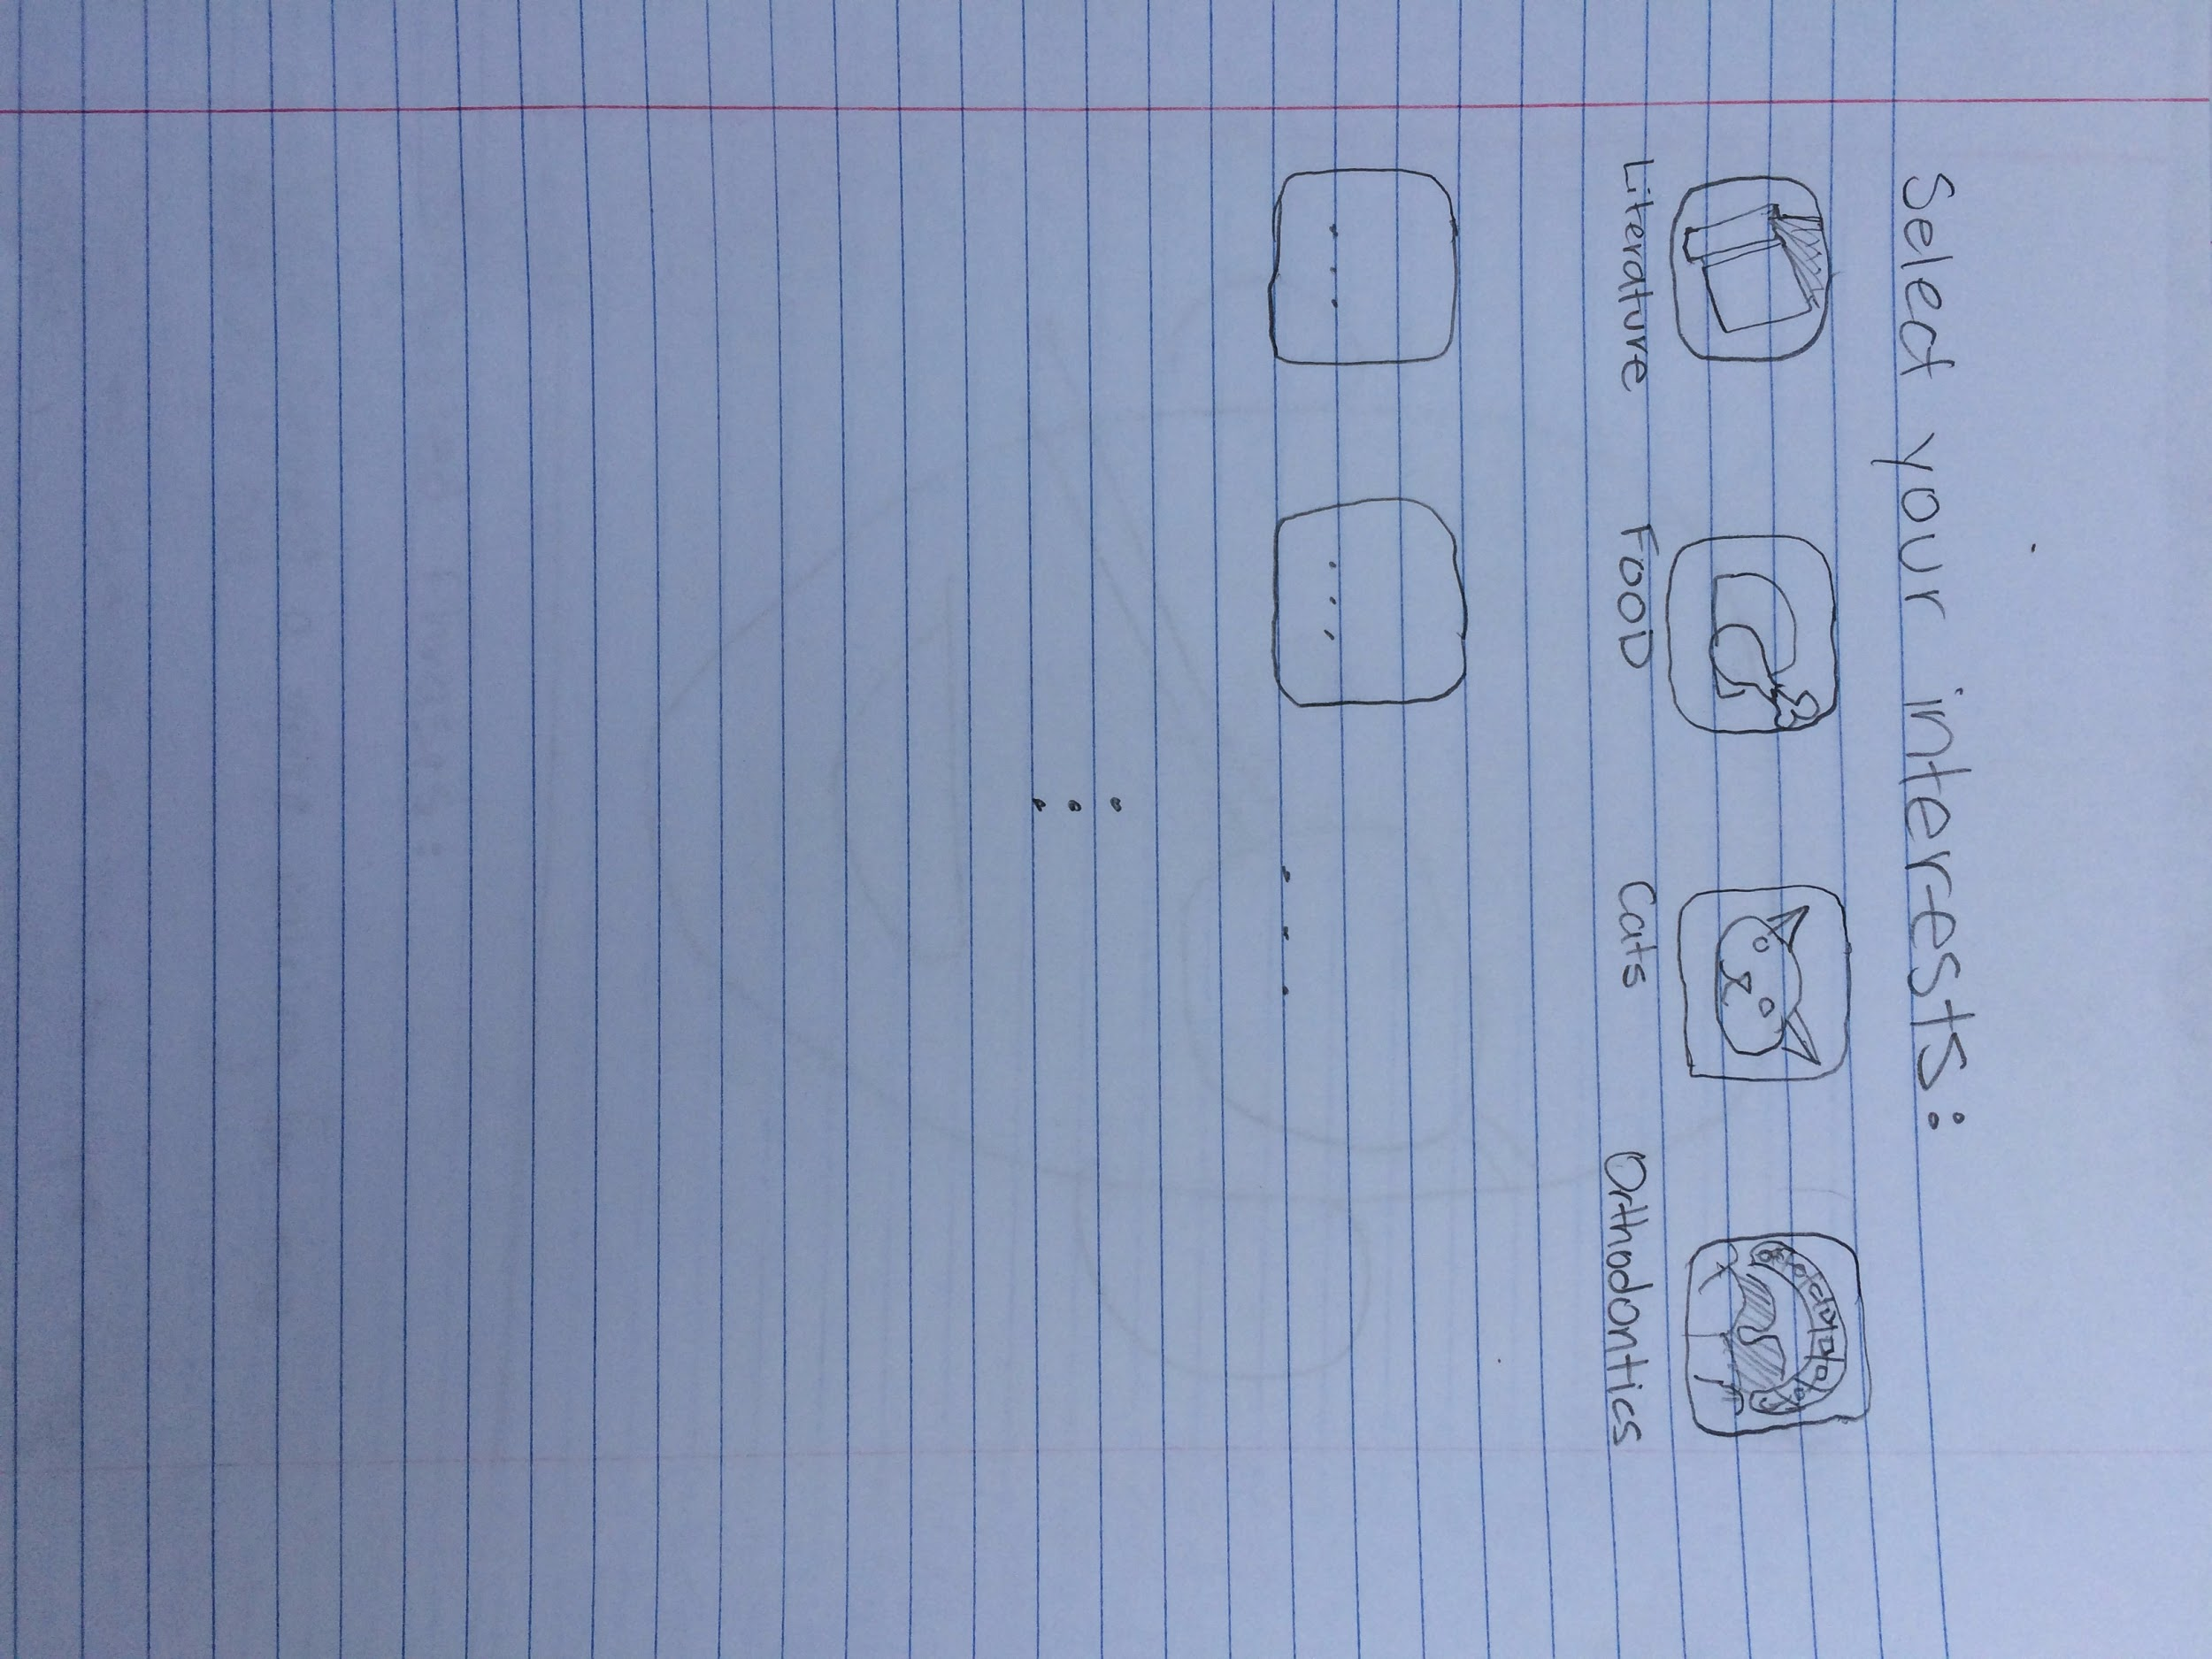 Select your interests:
Literature FOOD Cats Orthodontics
... ...
...